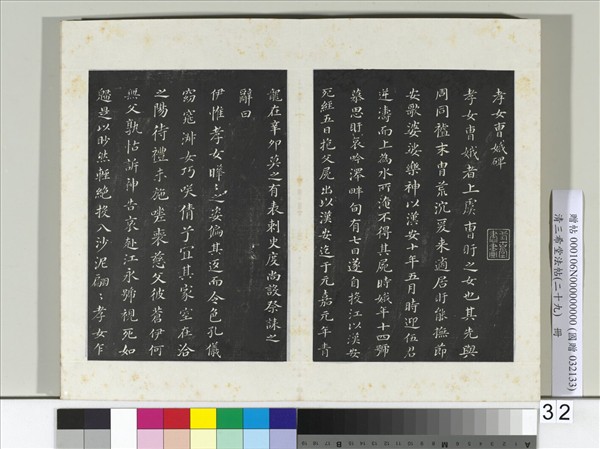 孝女曹娥碑
孝女曹娥者上虞曹盱之女也其先與
周同祖末胄荒沉爰来適居盱能撫節
安歌婆娑樂神以漢安十年五月時迎伍君
逆濤而上為水所淹不得其屍時娥年十四號
慕思盱哀吟澤畔旬有七日遂自投江以漢安
死經五日抱父屍出以漢安迄于元嘉元年青
龍在辛卯莫之有表刺史度尚設祭誄之
辭曰
伊惟孝女曄〻之姿偏其返而令色孔儀
窈窕淑女巧咲倩兮宜其家室在洽
之陽待禮未施嗟喪慈父彼蒼伊何
無父孰怙訴神告哀赴江永號視死如
是以眇然輕絶投入沙泥翩〻孝女乍
贈帖 000106N000000000 (國贈 032133)
清三希堂法帖(二十九) 冊
32